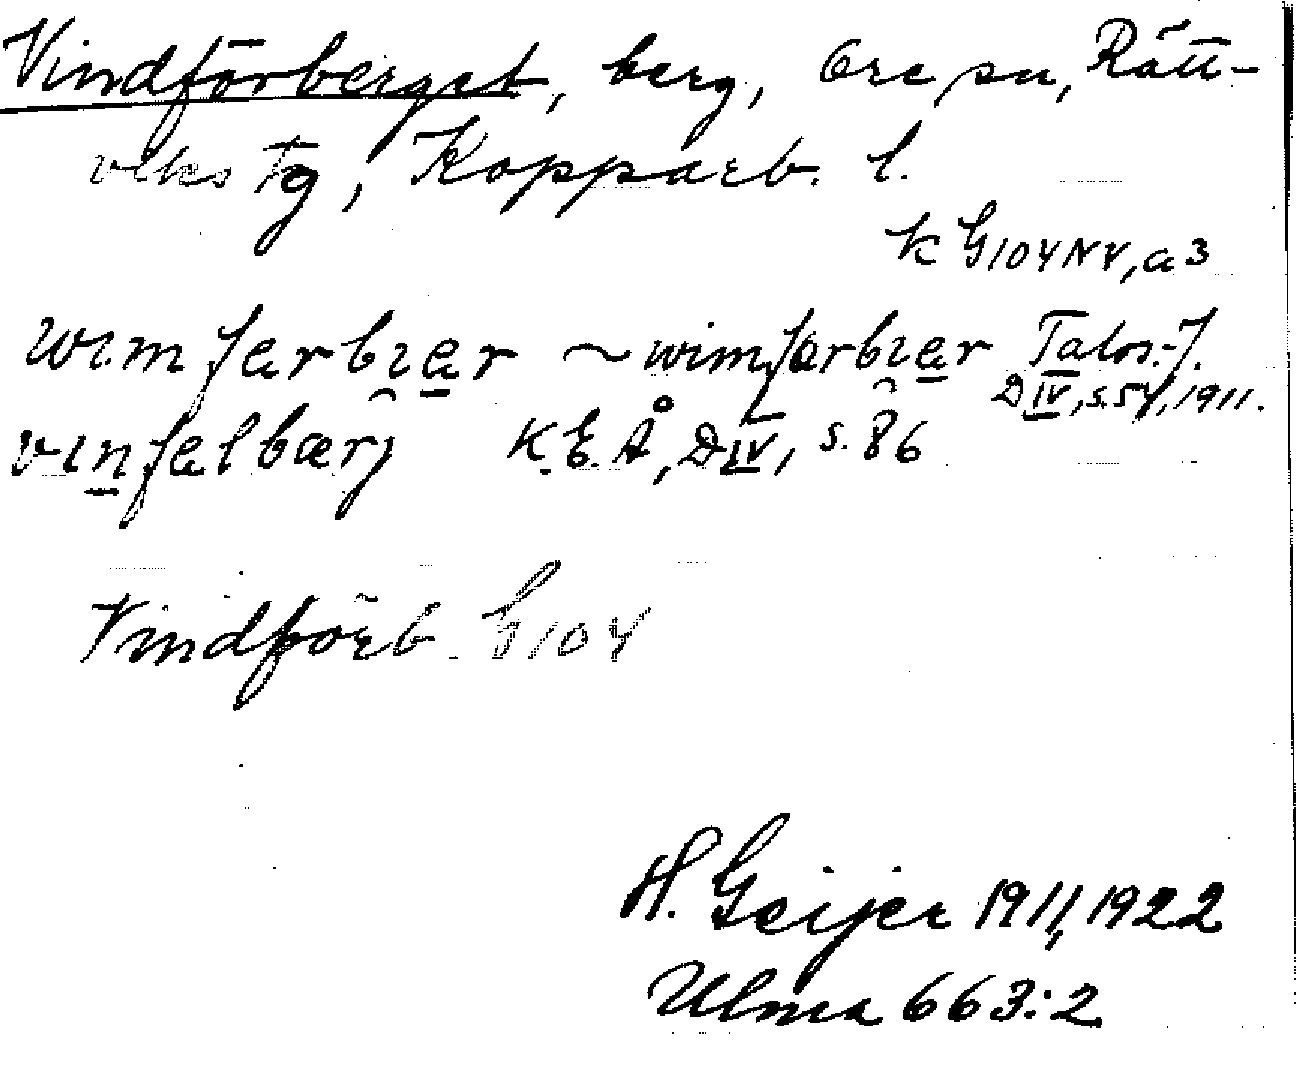 Vindförberget, berg, Ore sn, Rätt-
viks tg, Kopparb. l.
k G104NV, a3
wımfərbıər ~ wimfərbıər Talos. J.
D IV, s. 54, 1911.
vınfəlbærj K.E. Å, D IV, s. 86
Vindförb. G104
H. Geijer 1911, 1922
Ulma 663:2